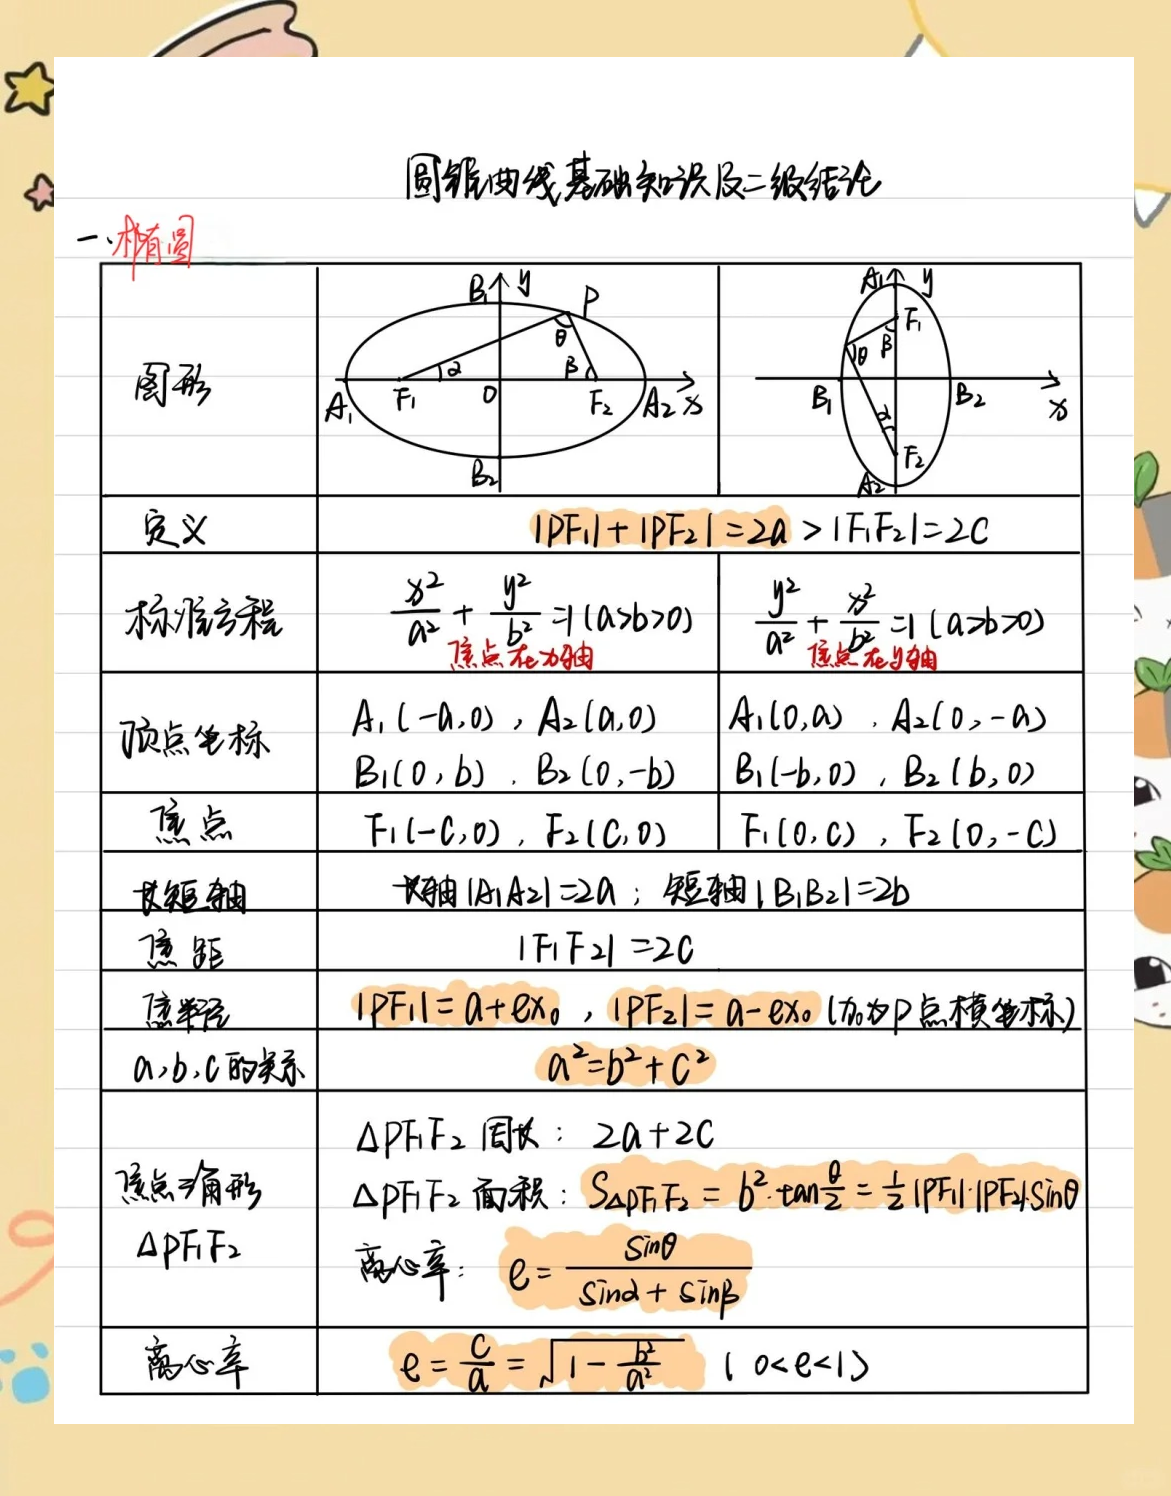 圆锥曲线基础知识及二级结论
一、椭圆
图形
B₁ y P θ α β A₁ F₁ O F₂ A₂ x B₂
A₁ y F₁ β θ B₁ B₂ x α F₂ A₂
定义 |PF₁|+|PF₂|=2a>|F₁F₂|=2C
标准方程 x²/a² + y²/b² =1(a>b>0) y²/a² + x²/b² =1(a>b>0)
焦点在x轴 焦点在y轴
顶点坐标 A₁(-a,0),A₂(a,0) A₁(0,a),A₂(0,-a)
B₁(0,b),B₂(0,-b) B₁(-b,0),B₂(b,0)
焦点 F₁(-C,0),F₂(C,0) F₁(0,C),F₂(0,-C)
长短轴 长轴|A₁A₂|=2a;短轴|B₁B₂|=2b
焦距 |F₁F₂|=2C
焦半径 |PF₁|=a+ex₀,|PF₂|=a-ex₀(x₀为P点横坐标)
a,b,C的关系 a²=b²+C²
焦点三角形 △PF₁F₂周长:2a+2C
△PF₁F₂ △PF₁F₂面积:S△PF₁F₂=b²·tanθ/2=1/2|PF₁|·|PF₂|·Sinθ
离心率:e=Sinθ/(Sinα+Sinβ)
离心率 e=C/a=√(1-b²/a²) (0<e<1)